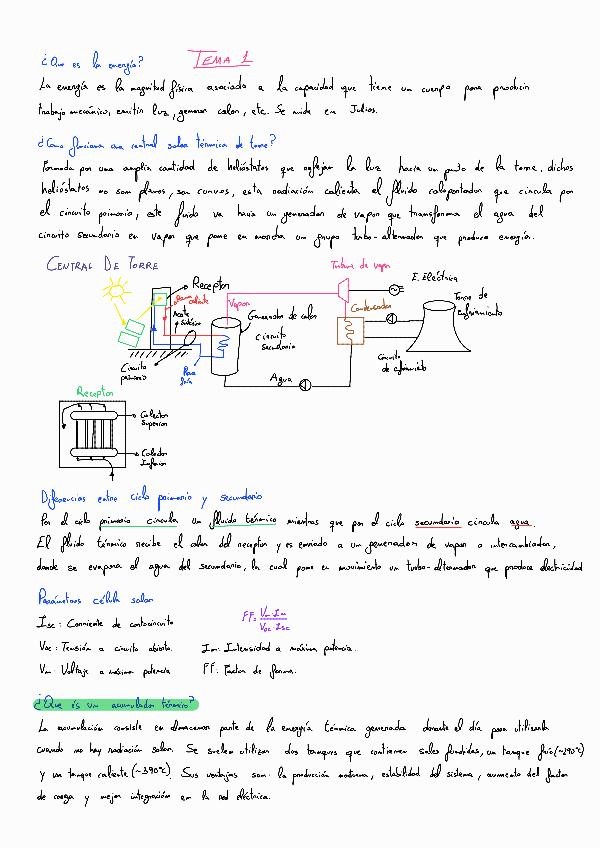 TEMA 1
¿Que es la energía?
La energía es la magnitud física asociada a la capacidad que tiene un cuerpo para producir
trabajo mecánico, emitir luz, generar calor, etc. Se mide en Julios.
¿Como funciona una central solar térmica de torre?
Formada por una amplia cantidad de helióstatos que reflejan la luz hacia un punto de la torre. dichos
helióstatos no son planos, son curvos, esta radiación calienta el fluido caloportador que circula por
el circuito primario, este fluido va hacia un generador de vapor que transforma el agua del
circuito secundario en vapor que pone en marcha un grupo turbo-alternador que produce energía.
CENTRAL DE TORRE
Turbina de vapor
Receptor
E. Eléctrica
caliente
Aceite
sintético
Vapor
Generador de calor
Condensador
Torre de
Enfriamiento
Circuito
secundario
Circuito
primario
fría
Agua
Circuito
de enfriamiento
Receptor
Colector
Superior
Colector
Inferior
Diferencias entre ciclo primario y secundario
Por el ciclo primario circula un fluido térmico mientras que por el ciclo secundario circula agua.
El fluido térmico recibe el calor del receptor y es enviado a un generador de vapor o intercambiador,
donde se evapora el agua del secundario, la cual pone en movimiento un turbo-alternador que produce electricidad
Parámetros célula solar
Isc: Corriente de cortocircuito
FF = Vm·Im / Voc·Isc
Voc: Tensión a circuito abierto.
Im: Intensidad a máxima potencia.
Vm: Voltaje a máxima potencia
FF: Factor de forma.
¿Que es un acumulador térmico?
La acumulación consiste en almacenar parte de la energía térmica generada durante el día para utilizarla
cuando no hay radiación solar. Se suelen utilizar dos tanques que contienen sales fundidas, un tanque frío (~290ºC)
y un tanque caliente (~390ºC). Sus ventajas son: la producción nocturna, estabilidad del sistema, aumento del factor
de carga y mejor integración en la red eléctrica.